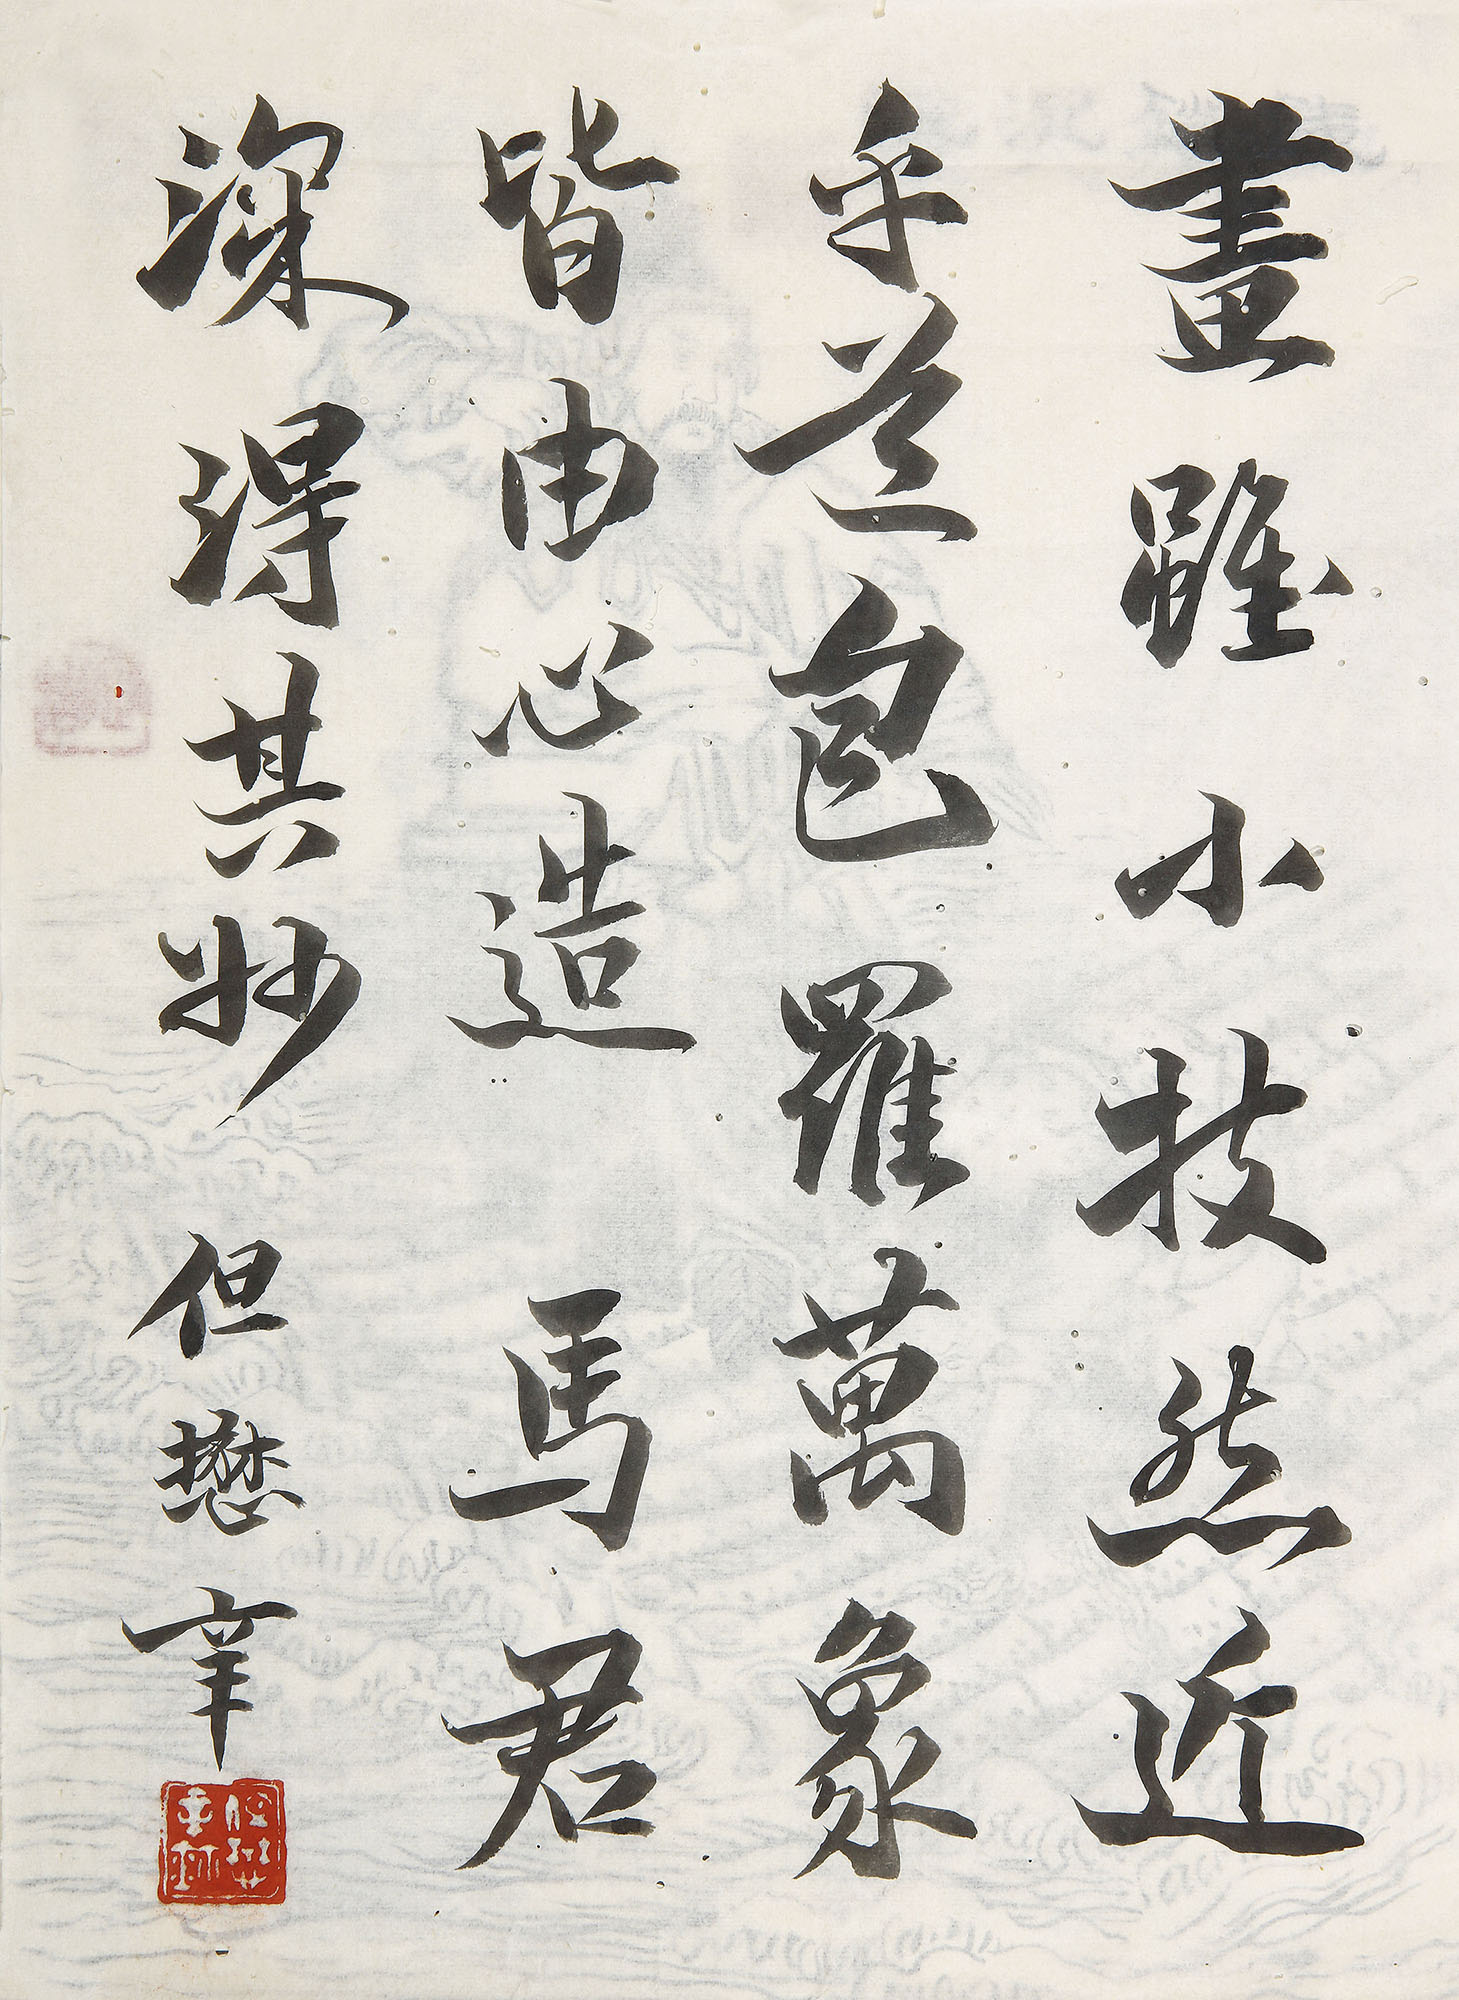 畫雖小技然近
乎道包羅萬象
皆由心造馬君
深得其妙但懋辛